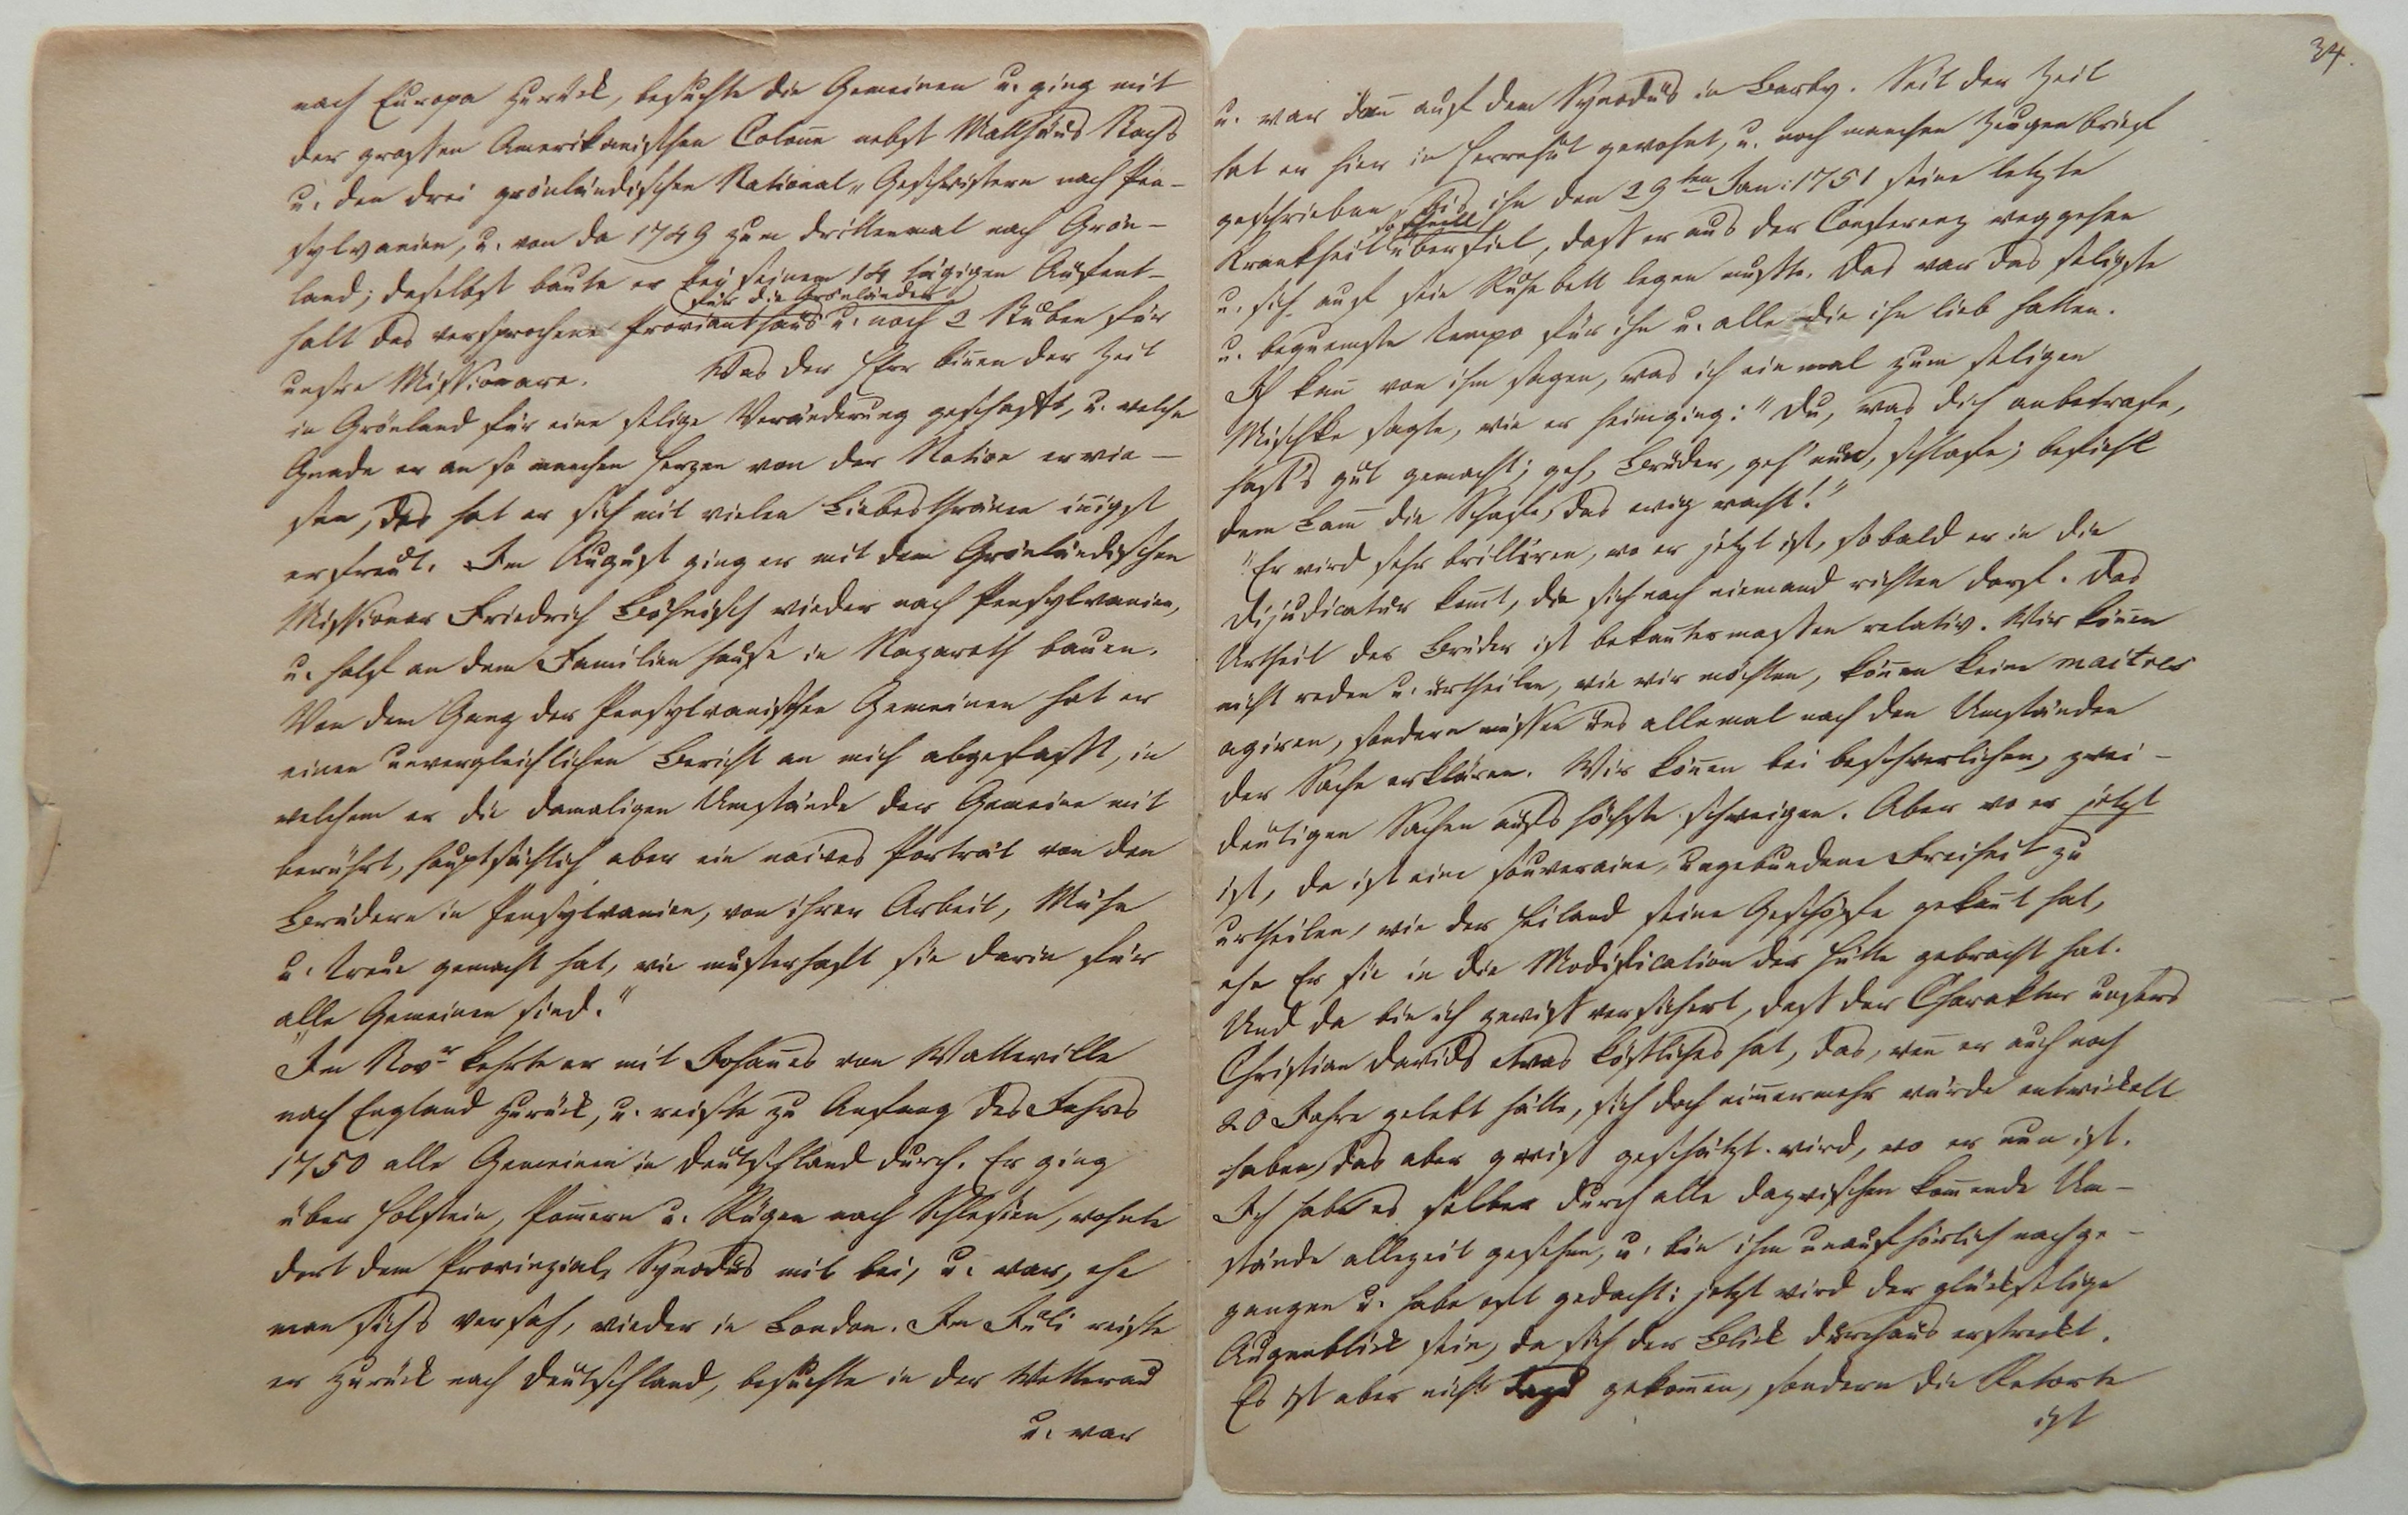 nach Europa zurück, besuchte die Gemeinen u. ging mit
der grossen Amerikanischen Colonn̄e nebst Matthäus Stachs
u. den drei grönländischen National-Geschwistern nach Pen-
sylvanien, u. von da 1749 zum drittenmal nach Grön-
land; daselbst baute er bey seinem 14 tägigen Aufent-
für die Grönländer
halt das versprochene Provianthaus u. noch 2 Stuben für
unsre Missionare. Was der HErr binnen der Zeit
in Grönland für eine selige Veränderung geschafft, u. welche
Gnade er an so manchen Herzen von der Nation erwie-
sen, das hat er sich mit vielen Liebesthränen innigst
erfreut. Im August ging er mit dem Grönländischen
Missionar Friedrich Böhnisch wieder nach Pensylvanien,
u. half an dem Familienhause in Nazareth bauen.
Von dem Gang der Pensylvanischen Gemeinen hat er
einen unvergleichlichen Bericht an mich abgefasst, in
welchem er die damaligen Umstände der Gemeine mit
berührt, hauptsächlich aber ein naives Porträt von den
Brüdern in Pensylvanien, von ihrer Arbeit, Mühe
u. Treue gemacht hat, wie musterhaft sie darin für
alle Gemeinen sind."
"Im Novr kehrte er mit Johannes von Watteville
nach England zurück, u. reiste zu Anfang des Jahres
1750 alle Gemeinen in Deutschland durch. Er ging
über Holstein, Pommern u. Rügen nach Schlesien, wohnte
dort dem Provinzial-Synodus mit bei, u. war, ehe
man sichs versah, wieder in London. Im Juli reiste
er zurück nach Deutschland, besuchte in der Wetterau
u. war
34.
u. war dann auf dem Synodus in Barby. Seit der Zeit
hat er hier in Herrnhut gewohnt, u. noch manchen Zeugenbrief
geschrieben, bis ihn den 29ten Jan: 1751 seine letzte
so schnell
Krankheit überfiel, dass er aus der Conferenz weggehen
u. sich auf sein Ruhebett legen musste. Das war das seligste
u. bequemste Tempo für ihn u. alle die ihn lieb hatten.
Ich kann von ihm sagen, was ich einmal zum seligen
Mischke sagte, wie er heimging: "Du, was dich anbetrafe,
hast's gut gemacht; geh, Bruder, geh nun, schlafe; befiehl
dem Lamm die Schafe, das ewig wacht!"
"Er wird sehr brilliren, wo er jetzt ist, sobald er in die
Dijudicatur kommt, die sich nach niemand richten darf. Das
Urtheil der Brüder ist bekanntermassen relativ. Wir können
nicht reden u. urtheilen, wie wir möchten, können keine maitres
agiren, sondern müssen uns allemal nach den Umständen
der Sache erklären. Wir können bei beschwerlichen, zwei-
deutigen Sachen aufs höchste schweigen. Aber wo er jetzt
ist, da ist eine souveraine, ungebundene Freiheit zu
urtheilen, wie der Heiland seine Geschöpfe gekannt hat,
ehe Er sie in die Modification der Hütte gebracht hat.
Und da bin ich gewiss versichert, dass der Charakter unsers
Christian Davids etwas köstliches hat, das, wenn er auch noch
20 Jahre gelebt hätte, sich doch nimmermehr würde entwickelt
haben, das aber gewiss geschätzt wird, wo er nun ist.
Ich habe es selber durch alle dazwischen kommende Um-
stände allezeit gesehen, u. bin ihm unaufhörlich nachge-
gangen u. habe oft gedacht: jetzt wird der glückselige
Augenblick sein, da sich der Blick durchaus erstreckt.
Es ist aber nicht dazu gekommen, sondern die Retorte
ist